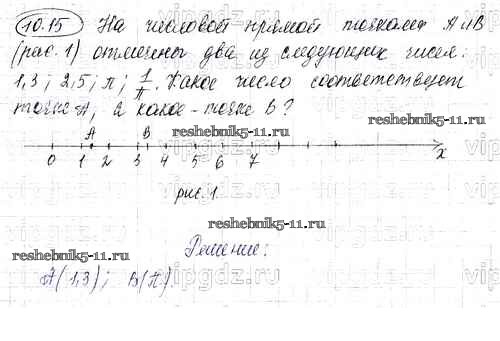 10.15 На числовой прямой точками А и В
(рис. 1) отмечены два из следующих чисел:
1,3; 2,5; π; 1/π. Какое число соответствует
точке А, а какое - точке В?
reshebnik5-11.ru
reshebnik5-11.ru
A B
0 1 2 3 4 5 6 7 x
рис. 1.
reshebnik5-11.ru
vipgdz.ru
Решение:
A(1,3); B(π).